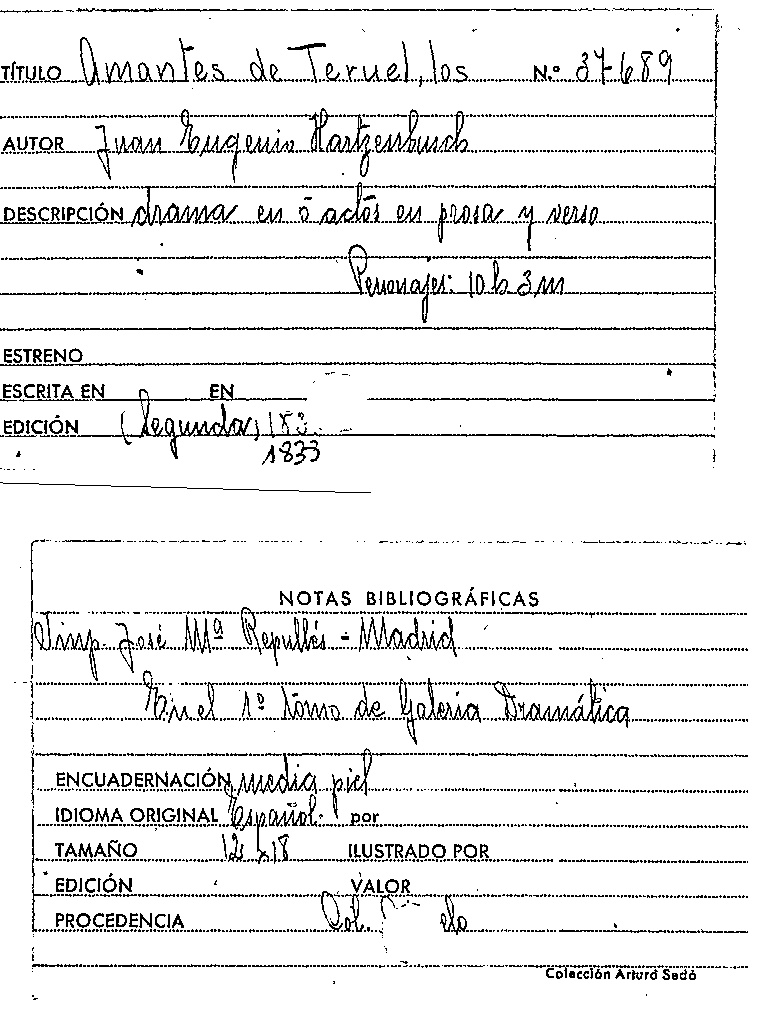 TÍTULO Amantes de Teruel, los N.º 37-689
AUTOR Juan Eugenio Hartzenbusch
DESCRIPCIÓN drama en 5 actos en prosa y verso
Personajes: 10 h 3 m
ESTRENO
ESCRITA EN EN
EDICIÓN (Segunda) 183
1833
NOTAS BIBLIOGRÁFICAS
Imp. José Mª Repullés - Madrid
En el 1º tomo de Galeria Dramática
ENCUADERNACIÓN media piel
IDIOMA ORIGINAL Español. por
TAMAÑO 12 x 18 ILUSTRADO POR
EDICIÓN VALOR
PROCEDENCIA Col.
Colección Arturo Sedó